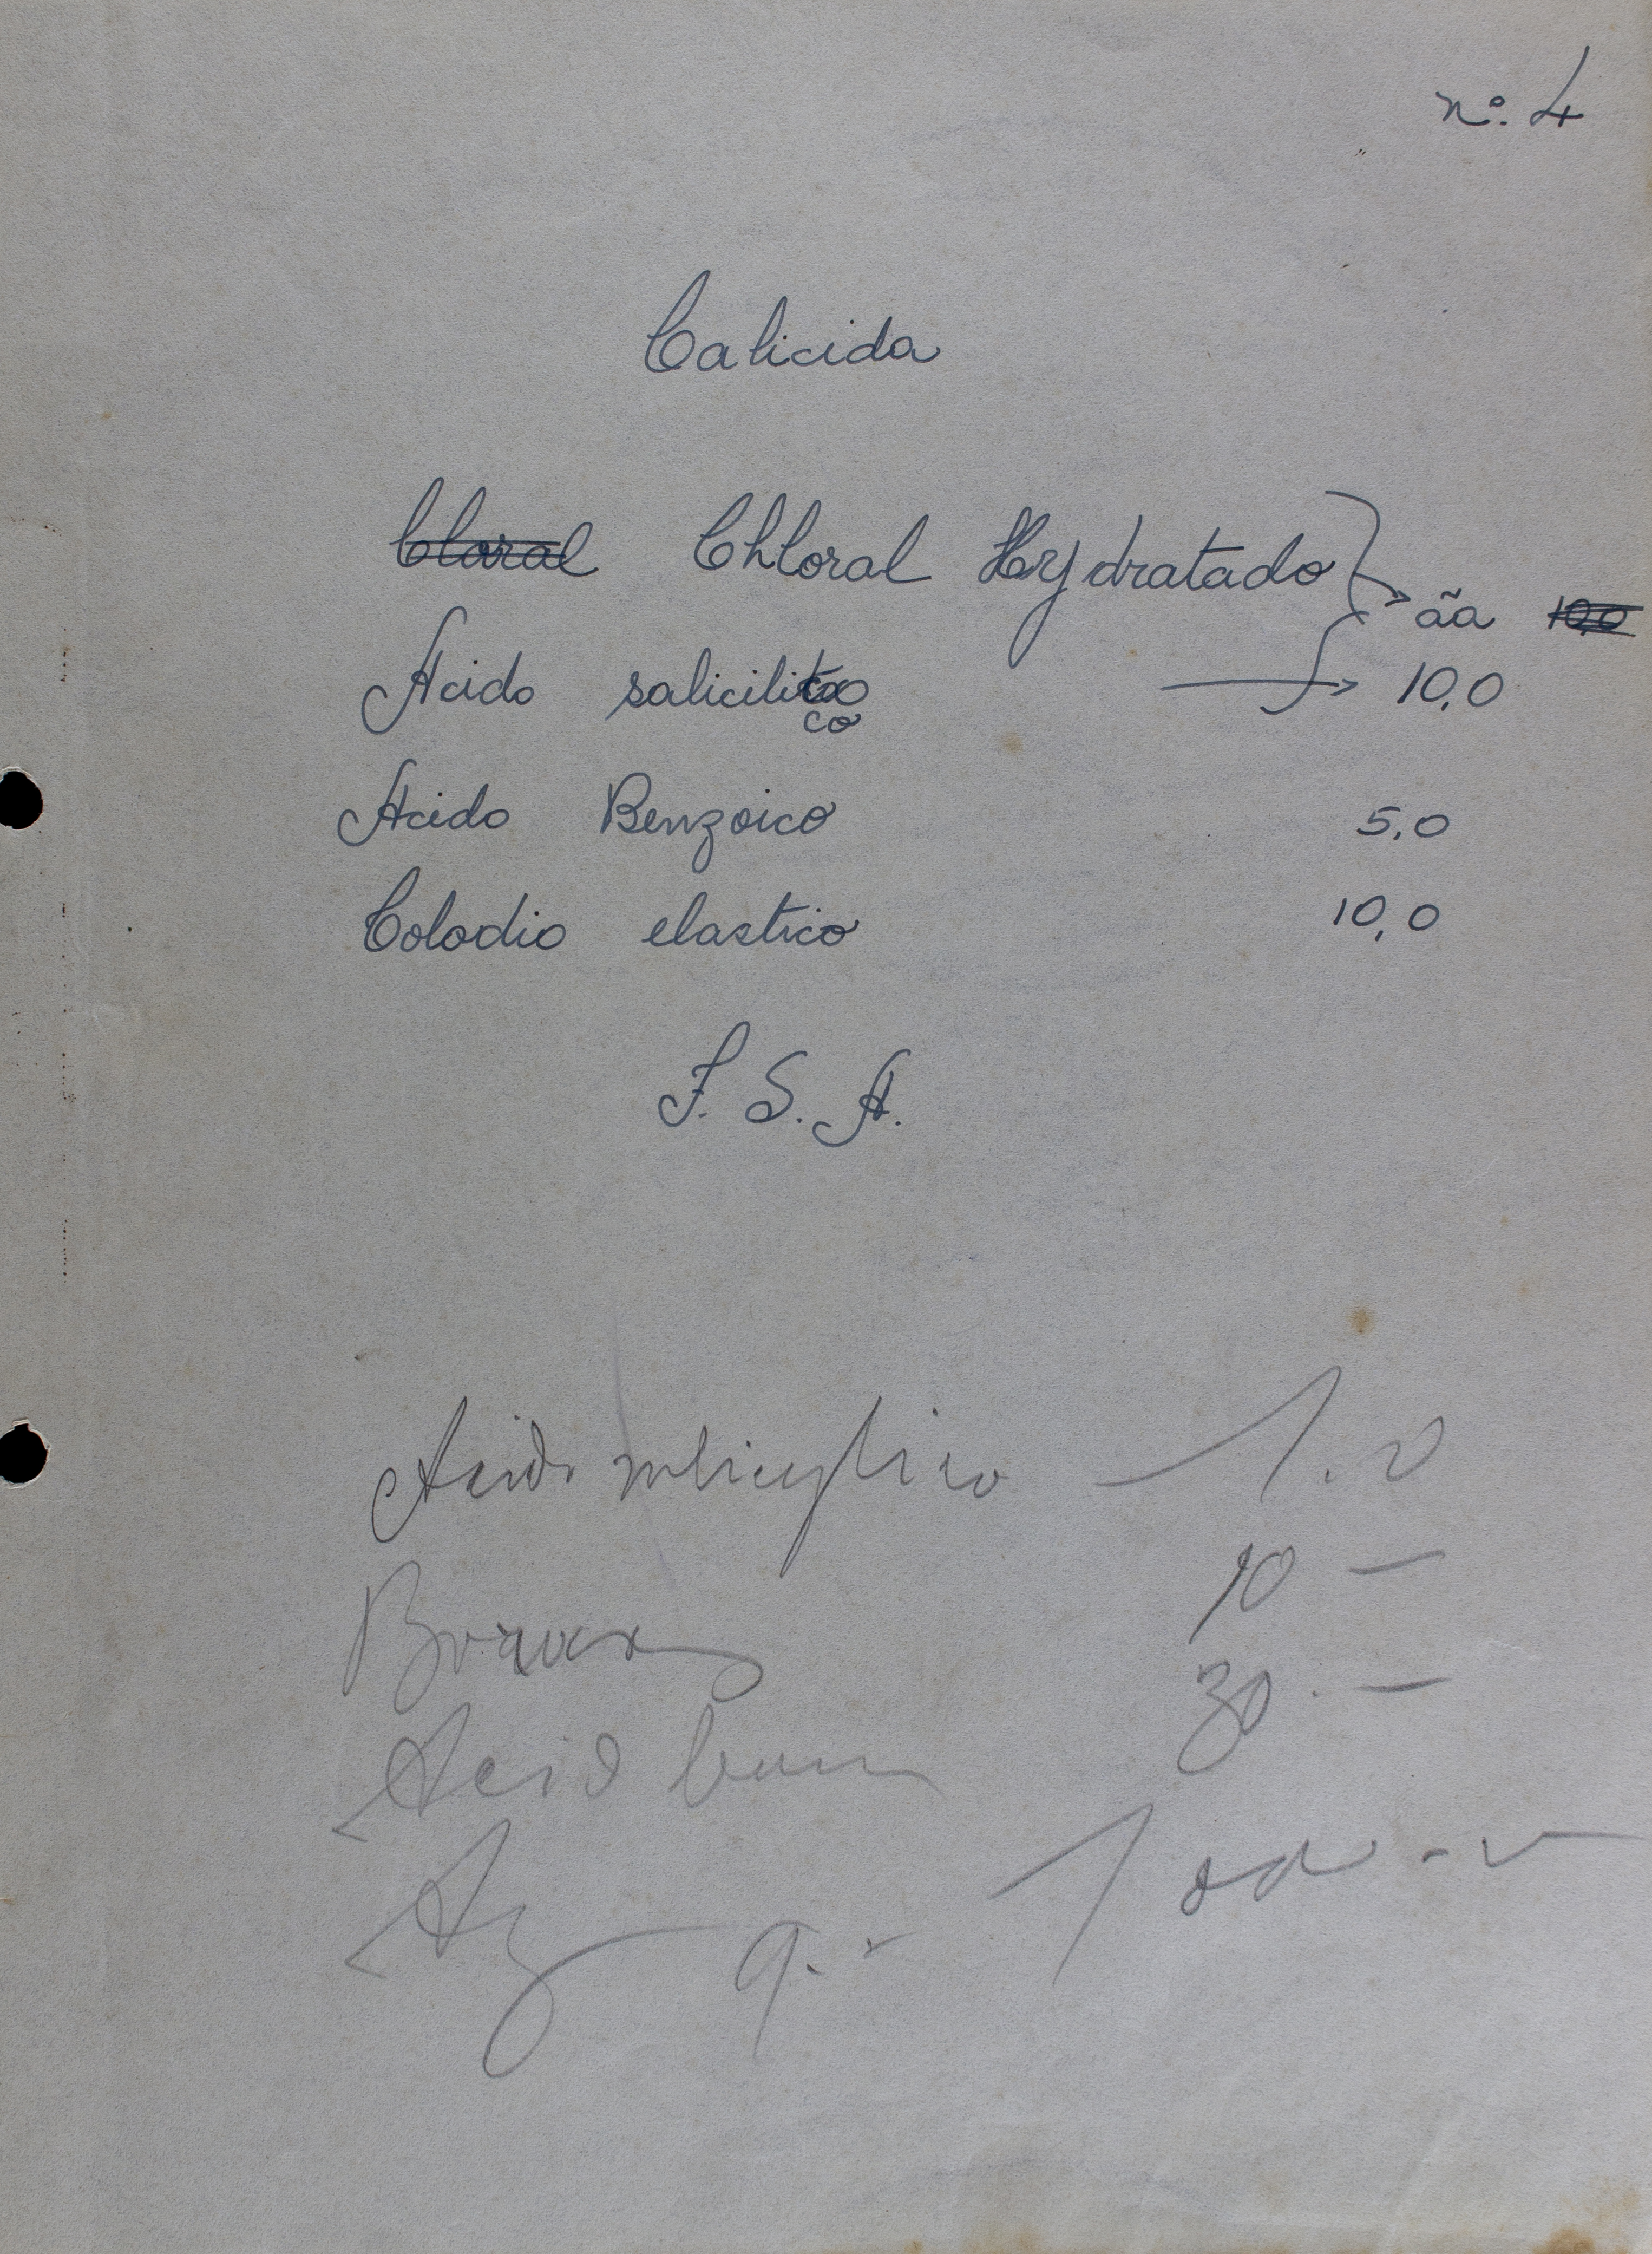 nº. 4
Calicida
Cloral Chloral Hydratado
ãa 10,0
Acido salicilico 10,0
co
Acido Benzoico 5,0
Colodio elastico 10,0
F. S. A.
Acido salicylico — 1.0
Borax 10 —
Acid 30 —